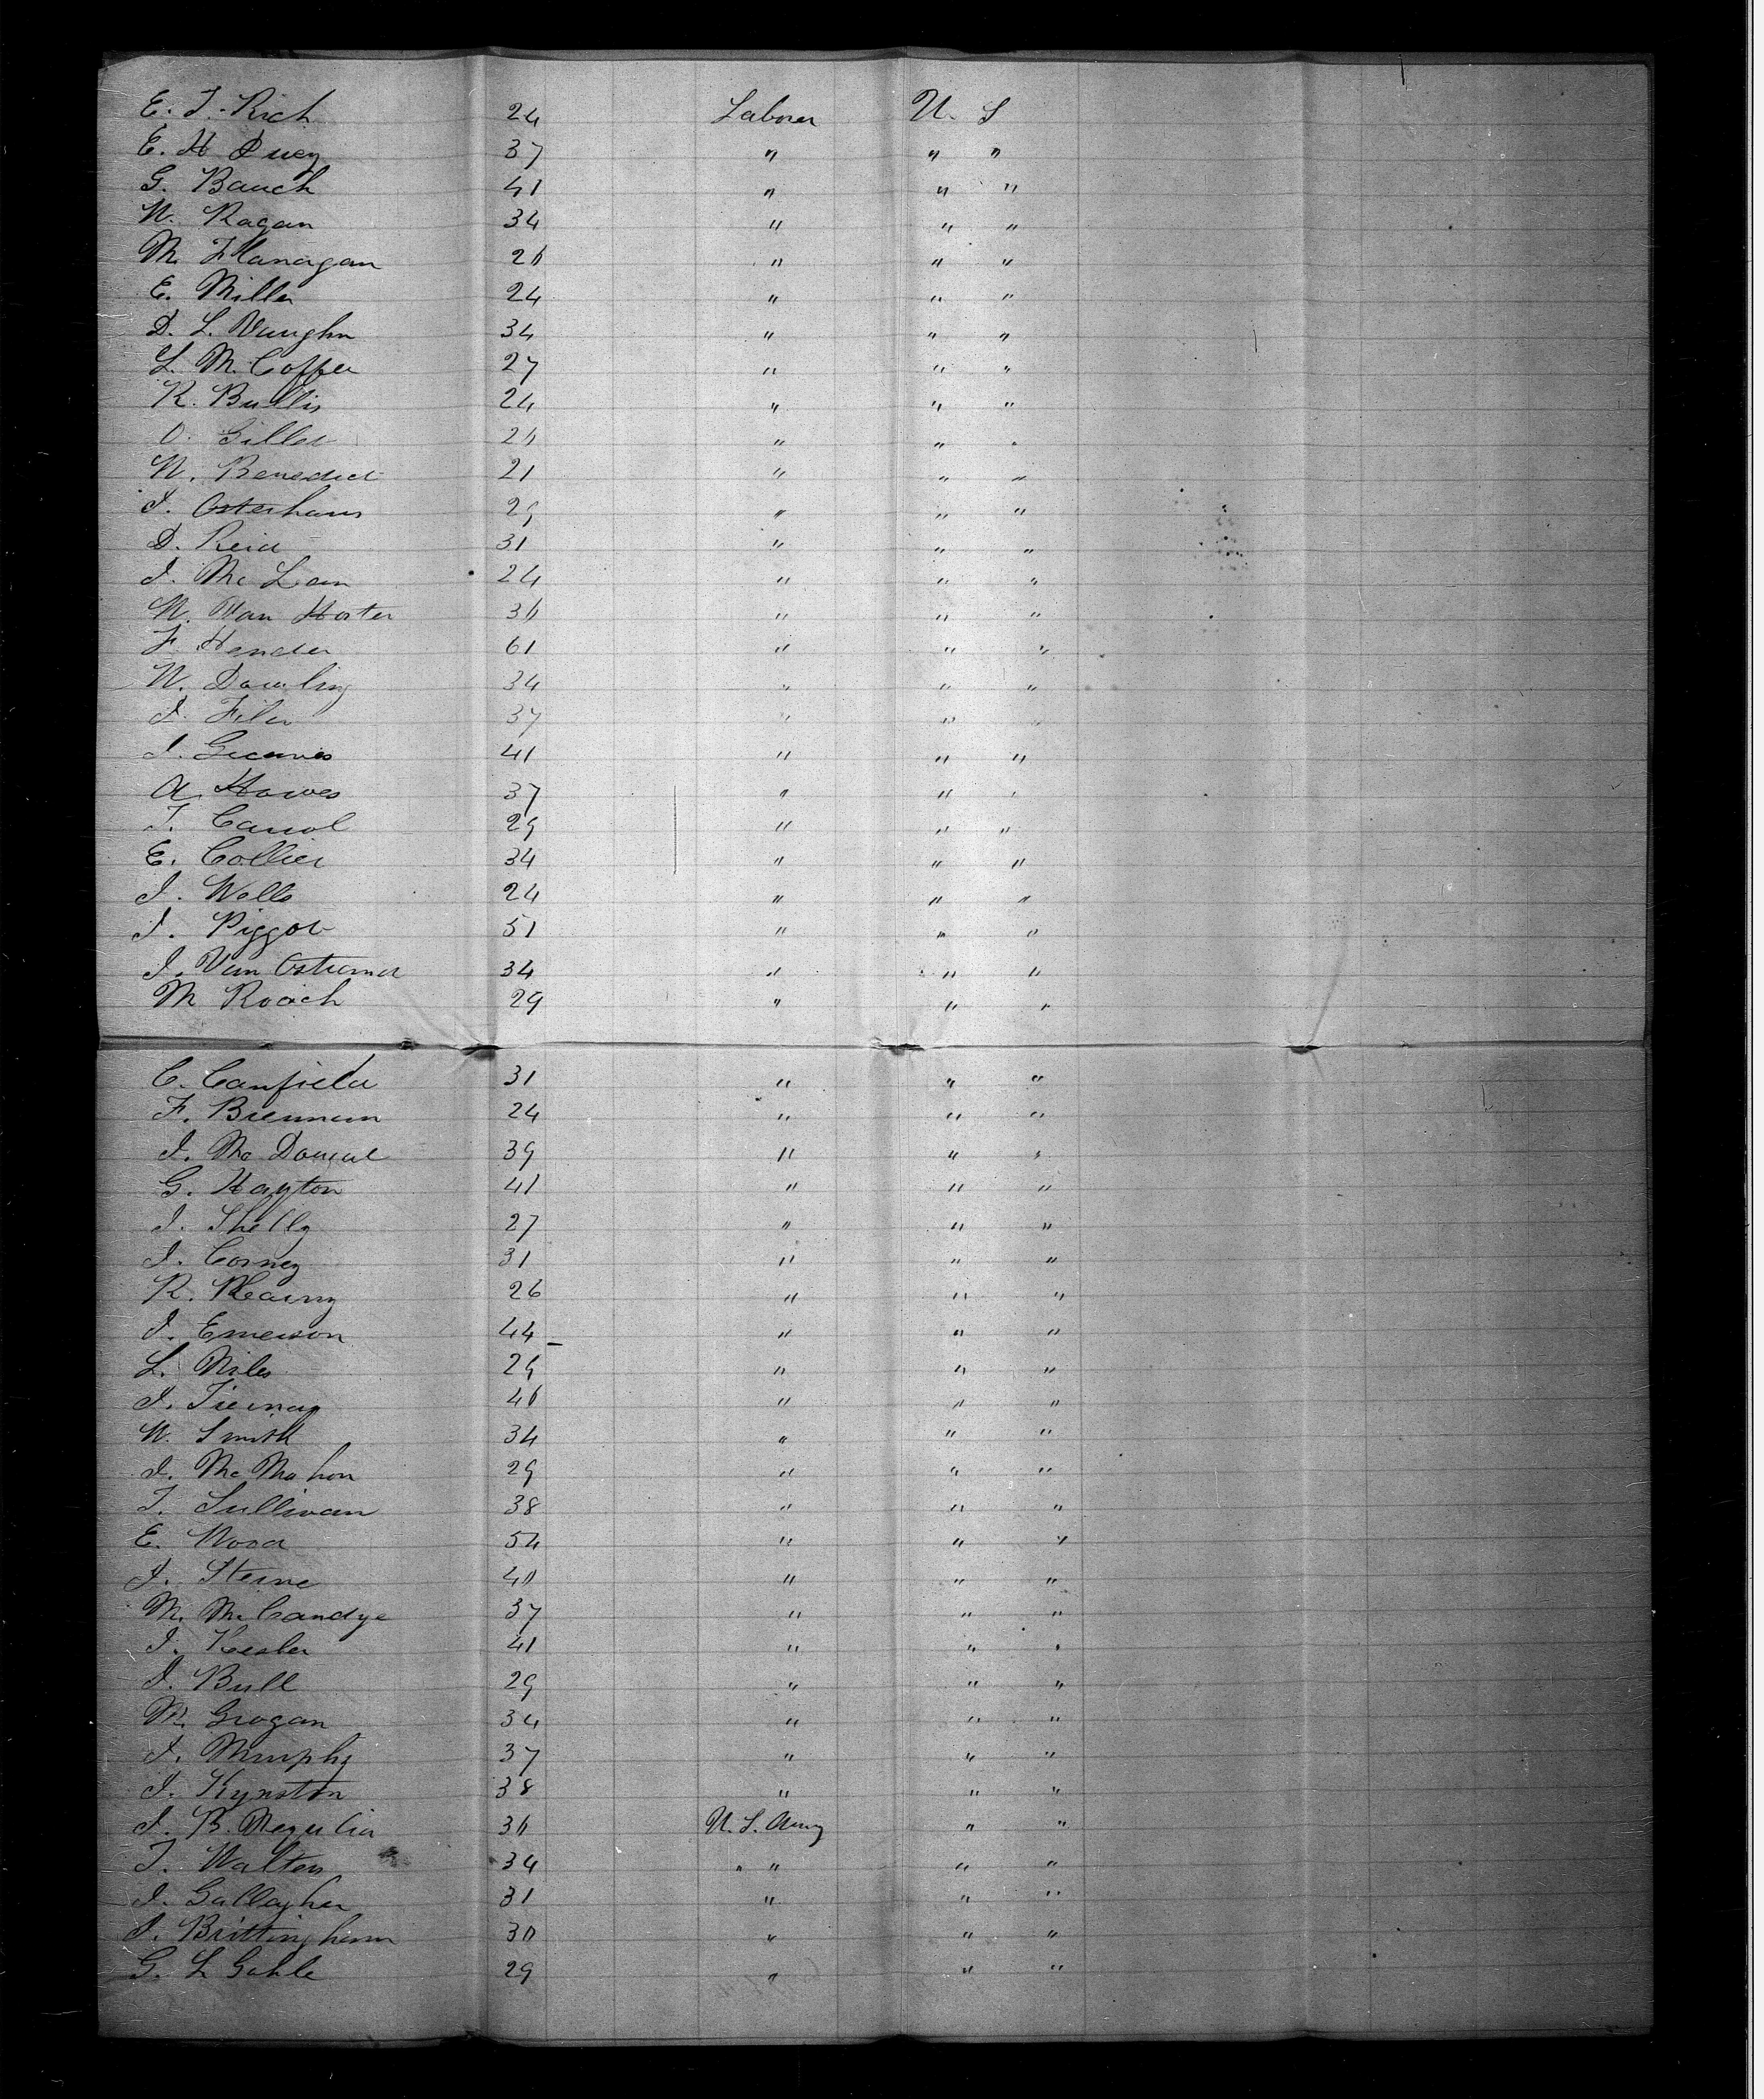 E. T. Rich 24 Laborer U. S
E. H Duey 37 " " "
G. Bauch 41 " " "
W. Ragan 34 " " "
M. Flanagan 26 " " "
E. Miller 24 " " "
D. L. Vaughn 34 " " "
L. M. Coffer 27 " " "
R. Bullis 24 " " "
O. Giller 26 " " "
W. Benedict 21 " " "
J. Osterhaus 29 " " "
D. Reid 31 " " "
J. Mc Lean 24 " " "
W. Van Horter 36 " " "
F. Hender 61 " " "
W. Dowling 34 " " "
J. Filer 37 " " "
J. Greaves 41 " " "
A. Howes 37 " " "
T. Carrol 29 " " "
E. Collier 34 " " "
J. Wells 24 " " "
J. Piggot 51 " " "
J. Van Ostrand 34 " " "
M Roach 29 " " "
C. Canfield 31 " " "
F. Brennan 24 " " "
J. Mc Donal 39 " " "
G. Hayton 41 " " "
J. Shelly 27 " " "
J. Corney 31 " " "
R. Kearny 26 " " "
J. Emerson 44 " " "
L. Niles 29 " " "
J. Tiernay 46 " " "
W. Smith 34 " " "
J. Mc Mahon 29 " " "
T. Sullivan 38 " " "
E. Wood 54 " " "
J. Sterne 40 " " "
M. Mc Candye 37 " " "
J. Kesler 41 " " "
J. Bull 29 " " "
M. Grogan 34 " " "
J. Murphy 37 " " "
J. Kynston 38 " " "
J. B. 36 U. S. Army " "
T. Walters 34 " " " "
J. Gallagher 31 " " "
J. Brittingham 30 " " "
G. L Gable 29 " " "